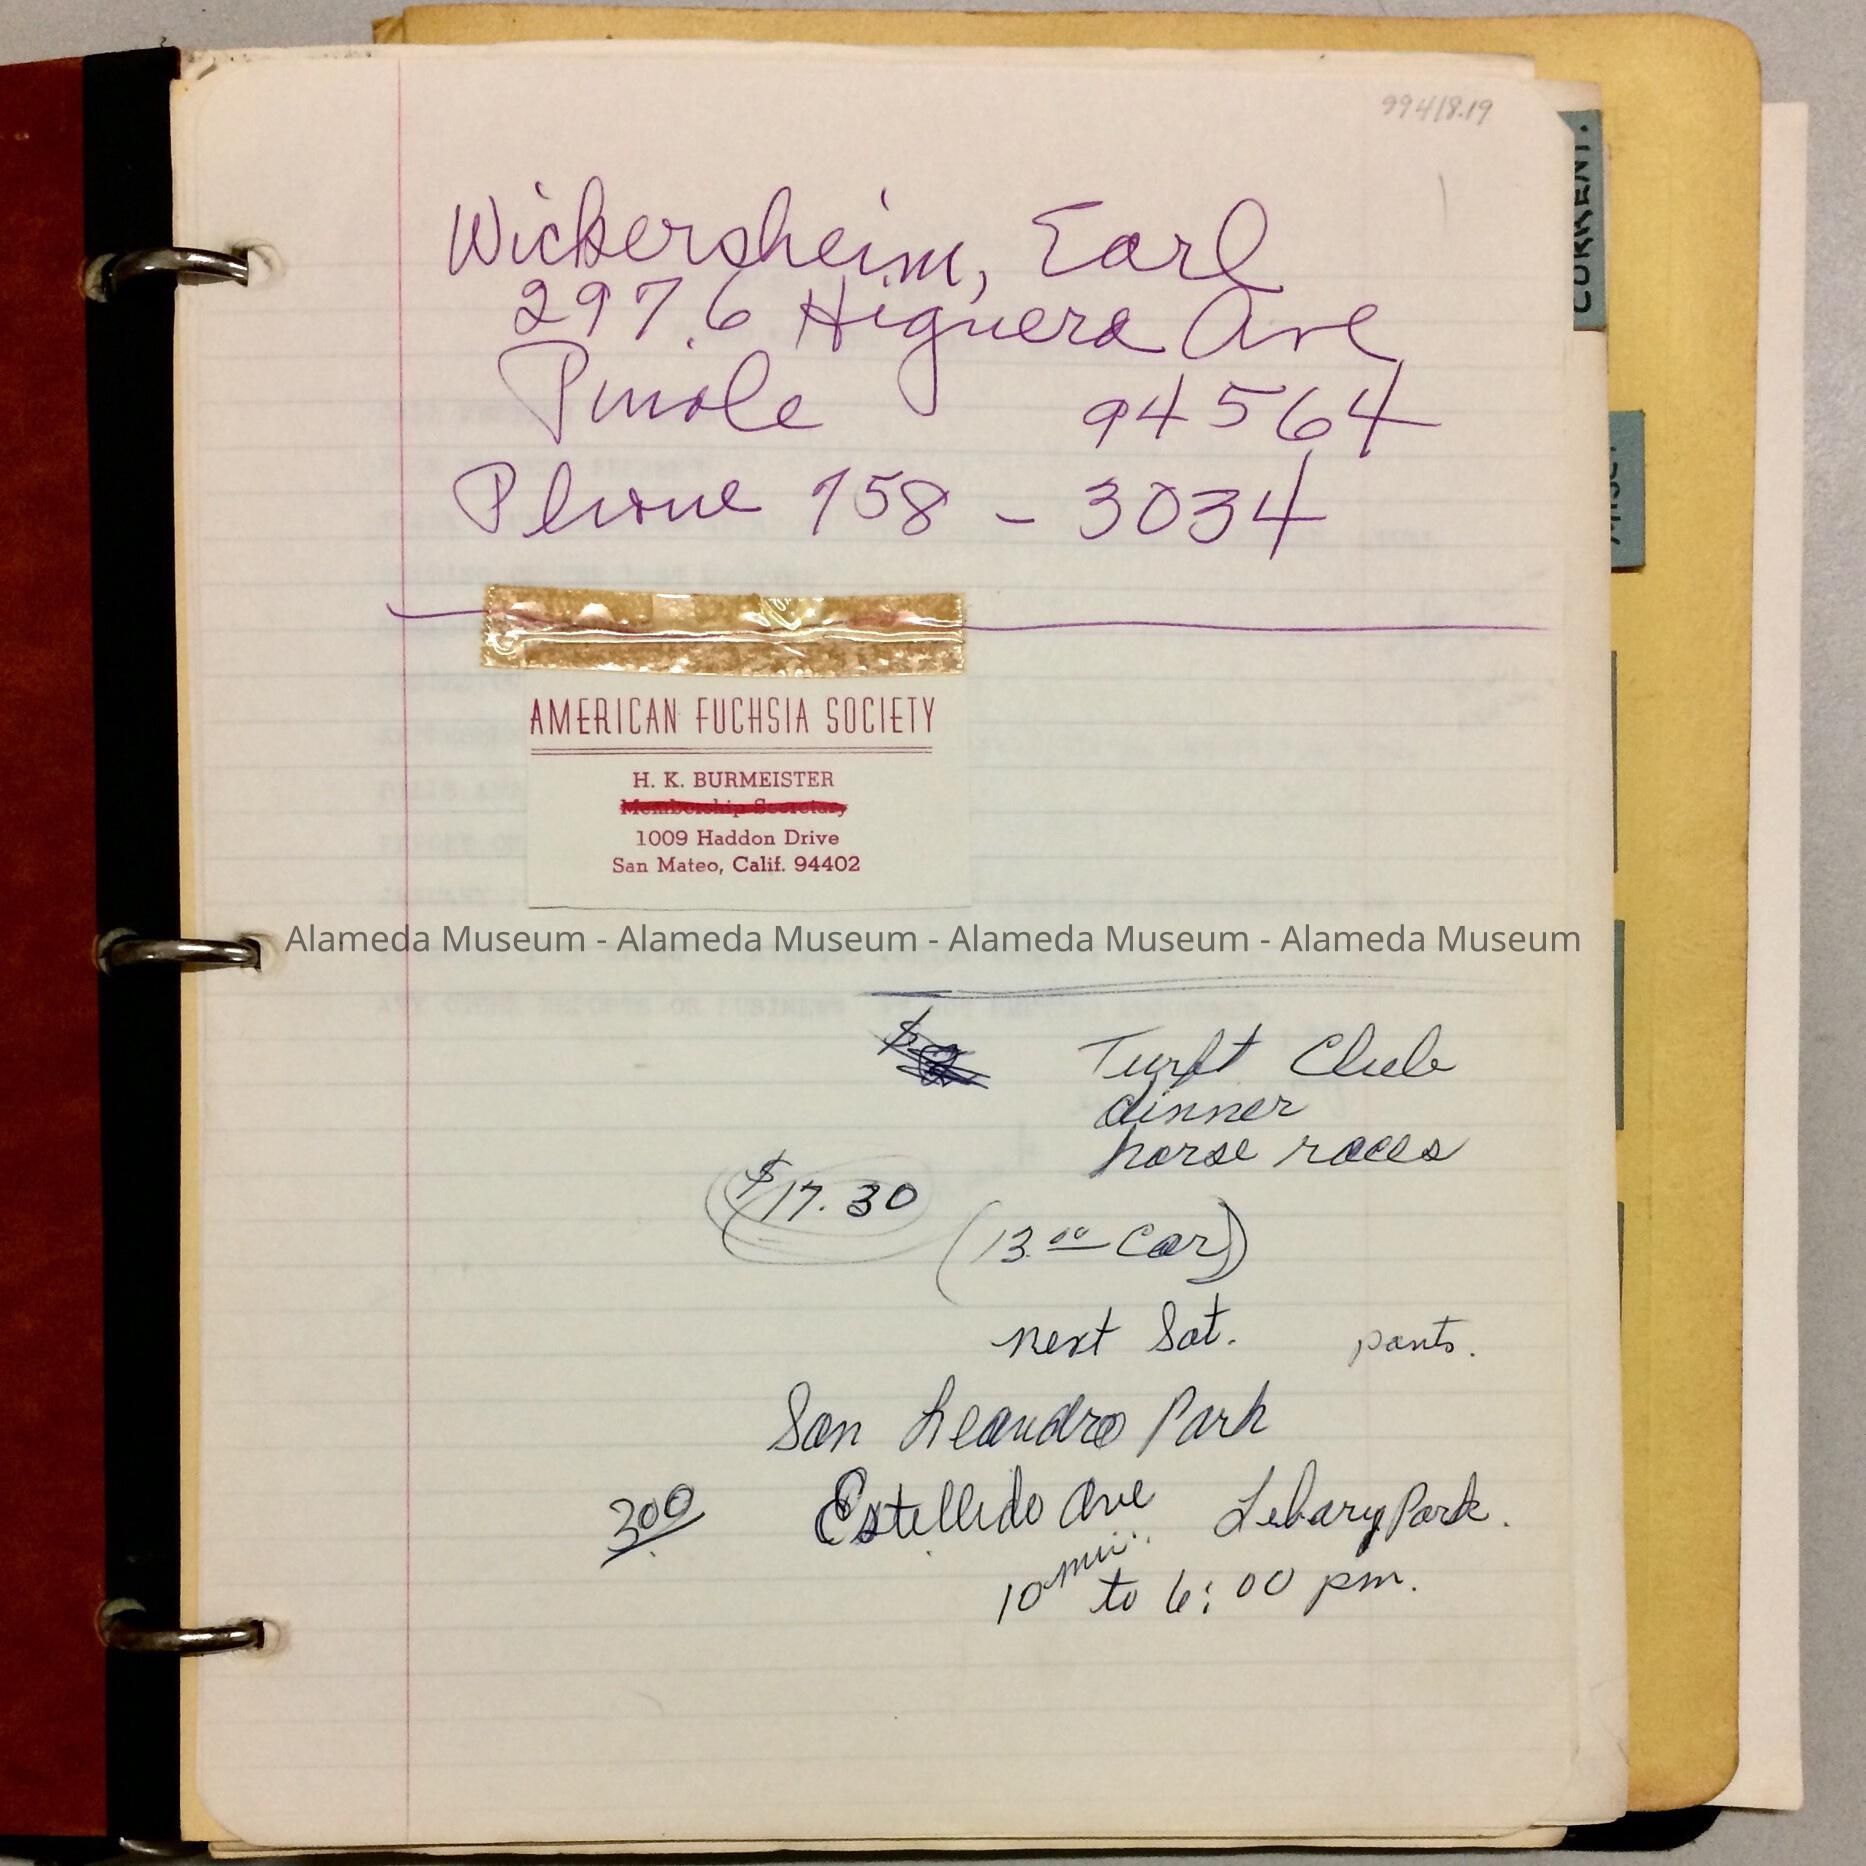 99418.19
CURRENT.
Wickersheim, Earl
2976 Higuera Ave
Pinole 94564
Phone 758 - 3034
AMERICAN FUCHSIA SOCIETY
H. K. BURMEISTER
Membership Secretary
1009 Haddon Drive
San Mateo, Calif. 94402
Alameda Museum - Alameda Museum - Alameda Museum - Alameda Museum
$ Turft Club
dinner
horse races
$17.30
(13.00 Car)
next Sat. pants.
San Leandro Park
300 Estellido Ave Lebary Park.
10 min. to 6:00 pm.